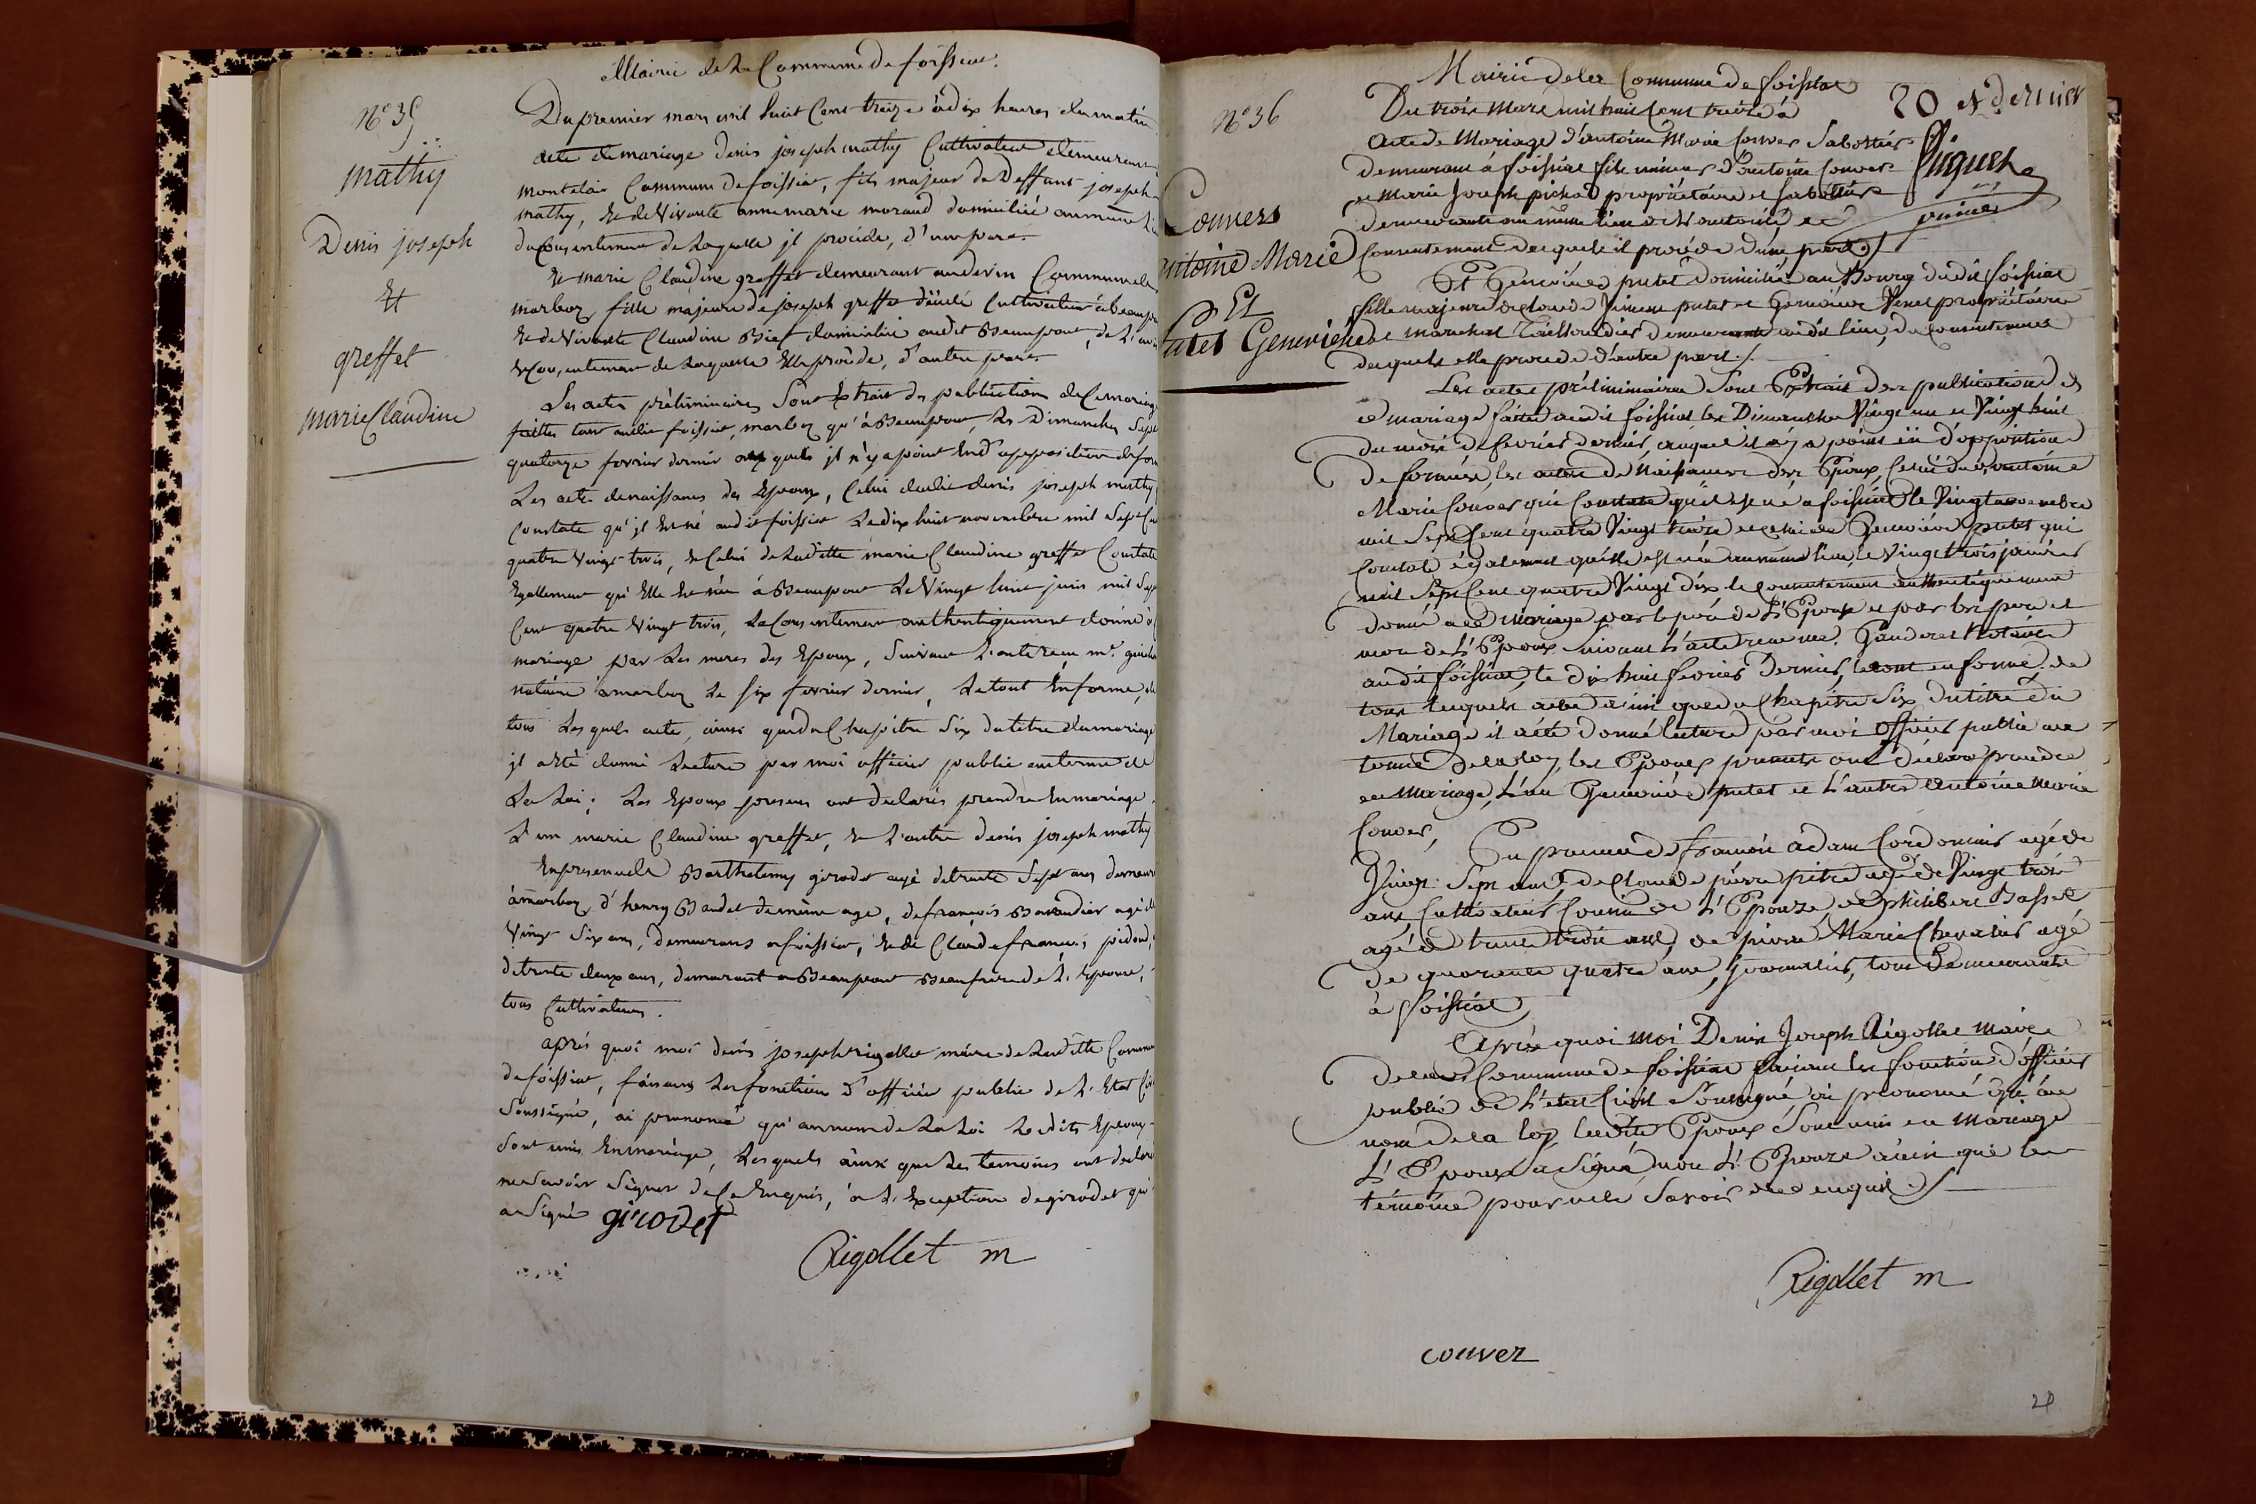 Mairie de La Commune de foissiat.
N° 35
mathy
Denis joseph
Et
greffet
marie Claudine
Du premier mars mil huit Cent treize à dix heures du matin
acte de mariage denis joseph mathy Cultivateur demeurant
montelair Commune de foissiat, fils majeur de Deffunt joseph
mathy, et de Vivante anne marie moraud domiciliée au même
du Consentement de Laquelle jl procéde, d'une part.
Et marie Claudine greffet demeurant au devin Commune de
marboz fille majeure de joseph greffet Cultivateur à beaupo
et de Vivante Claudine Bief domiciliée audit Beaupont, de L'
& Consentement de Laquelle Elle procéde, d'autre part.
Les actes préliminaires Sont Extrait des publications de Ce mariage
faittes tant audit foissiat, marboz qu'à Beaupont, Les Dimanches Sept
quatorze fevrier dernier auxquels jl n'y a point eud'opposition de for
Les acte de naissances des Epoux, Celui dudit denis joseph mathy
Constate qu'jl Est né audit foissiat Le dix huit novembre mil Sept Cen
quatre Vingt trois, et Celui de Laditte marie Claudine greffet Constate
Egallement qu'Elle Est née à Beaupont Le Vingt huit juin mil Sept
Cent quatre Vingt trois, Le Consentement authentiquement donné à
mariage par Les meres des Epoux, Suivant L'acte reçu mr.
notaire à marboz Le six fevrier dernier, Le tout En forme, de
tous Lesquels acte, ainsi que du Chapitre Six du titre du mariage
jl a été donné Lecture par moi officier public au terme de
La Loi; Les Epoux presens ont declarés prendre En mariage,
L'un marie Claudine greffet, et L'autre denis joseph mathy
En presence de Barthelemy girodet agé de trente Sept ans demeur
à marboz, d'henry Baudet de même age, de françois Bavoudier agé de
Vingt Six ans, demeurans a foissiat, et de Claude françois pidoud,
de trente deux ans, demeurant a Beaupont Beaufrere de L'Epouse,
tous Cultivateurs.
après quoi moi denis joseph rigollet maire de Laditte Commu
de foissiat, faisant Les fonctions d'officier public de L'Etat Ci
Soussigné, ai prononcé qu'au nom de La Loi Lesdits Epoux
Sont unis En mariage, Lesquels ainsi que Les temoins ont declaré
ne Savoir Signer de Ce Enquis, à L'Exception de girodet qui
a Signé girodet
Rigollet m
Mairie dela Commune de foissiat
20 & dernier
Piquet
N° 36
Couvers
antoine Marie
Et
putet Genevieve
Du trois Mars mil huit Cent treize à
Acte de Mariage d'antoine Marie Couver Sabottier
demeurant à foissiat fils mineur d'antoine Couver
et Marie Joseph pichod propriétaire et Sabottier
demeurants au même lieu de L'autorité et
Consentement desquels il procéde d'une part ./
Et Genevieve putet domiciliée au Bourg dudit foissiat
fille majeure de Claude putet et Genevieve Venet propriétaire
et marchand Taillandier demeurants audit lieu, du consentement
desquels elle procede d'autre part ./.
Les actes préliminaires Sont Extrait des publications de
ce mariage faites audit foissiat les Dimanches Vingt un et Vingt huit
du mois de fevrier dernier, auquel il n'y a point eü d'opposition
de formée, les actes de Naissances des Epoux, Celui dud antoine
Marie Couver qui Constate qu'il est né a foissiat le Vingt novembre
mil Sept Cent quatre Vingt treize et celui de Genevieve putet qui
Constate également qu'elle est née au même lieu, le Vingt trois janvier
mil Sept Cent quatre Vingt dix le Consentement authentiquement
donné a ce Mariage par le père de L'Epoux et par les pere et
mere de L'Epouse Suivant L'acte reçu me. Notaire
audit foissiat, le dix huit fevrier Dernier, le tout en forme, de
tous lesquels actes ainsi que du Chapitre Six du titre du
Mariage il a été donné lecture par moi Officier public au
terme de la loy, les Epoux presents ont déclaré prendre
en Mariage, L'un Genevieve putet et L'autre Antoine Marie
Couver,
En presence de françois adam Cordonnier agé de
Vingt Sept ans, de Claude pierre pitre agé de Vingt trois
ans Cultivateur Cousin de L'Epouze, de philibert Basset
agé de trente trois ans, de pierre Marie Chevalier agé
de quarante quatre ans, Journalier, tous Demeurants
à foissiat,
Après quoi moi Denis Joseph Rigollet Maire
de la Commune de foissiat faisant les fonctions d'officier
public de L'etat Civil Soussigné ai prononcé qu'au
nom de la loy lesdits Epoux Sont unis en Mariage
L'Epoux a Signé, non L'Epouze ainsi que les
témoins pour ne le Savoir de ce enquis ./
Rigollet m
couver
20